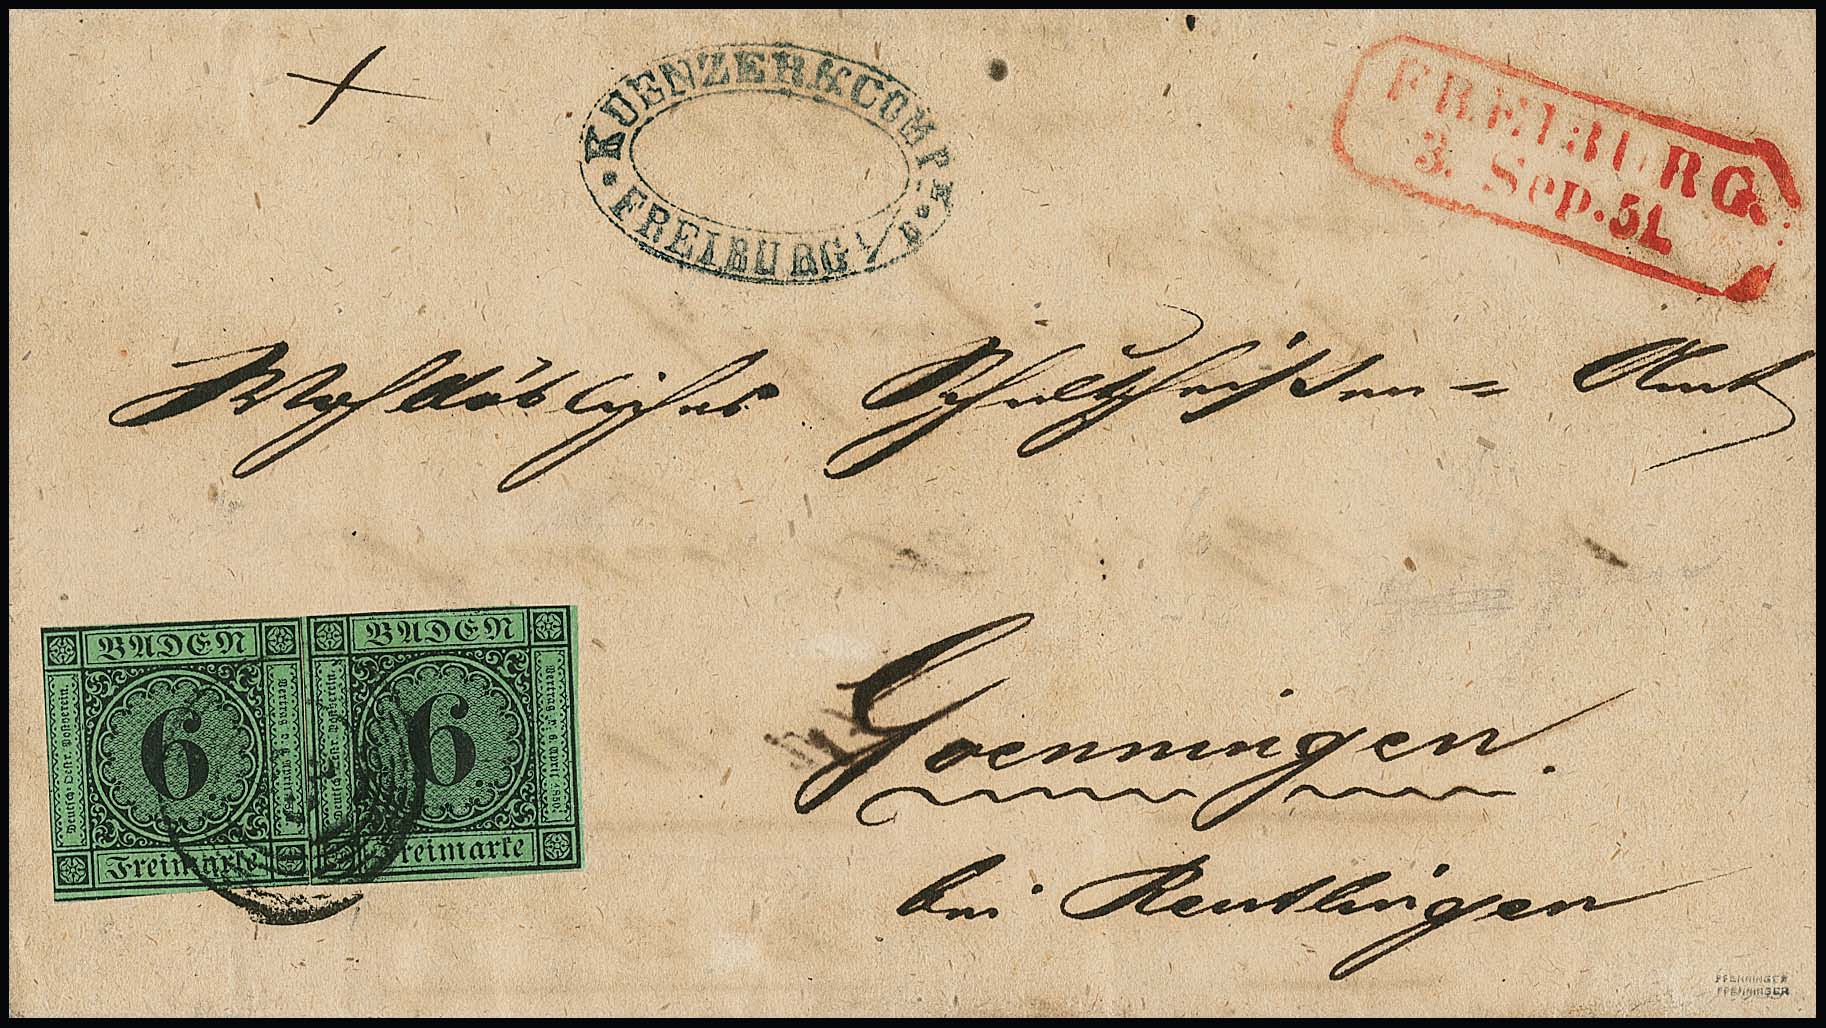 KUENZER & COMP.
FREIBURG i/B.
FREIBURG.
3. Sep. 51.
Wohllöbliches Schultheißen = Amt
BADEN
Deutsch-Oestr. Postverein.
6
Vertrag v. 6 April 1850
Freimarke
BADEN
Deutsch-Oestr. Postverein.
6
Vertrag v. 6 April 1850
Freimarke
Goenningen.
bei Reutlingen
PFENNINGER
PFENNINGER